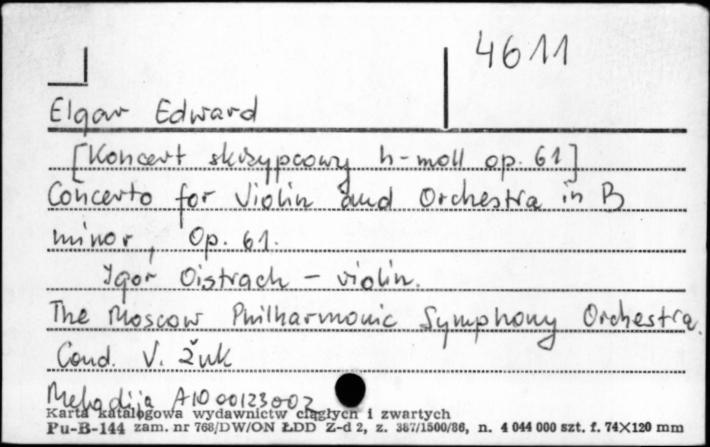 4611
Elgar Edward
[Koncert skrzypcowy h-moll op. 61]
Concerto for Violin and Orchestra in B
minor, Op. 61.
Igor Oistrach – violin.
The Moscow Philharmonic Symphony Orchestra.
Cond. V. Žuk
A10 00123007
Karta katalogowa wydawnictw ciągłych i zwartych
Pu-B-144 zam. nr 768/DW/ON ŁDD Z-d 2, z. 387/1500/86, n. 4 044 000 szt. f. 74×120 mm